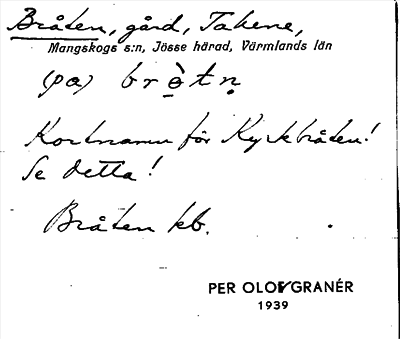 Bråten, gård, Takene,
Mangskogs s:n, Jösse härad, Värmlands län
(pa) brə̀tṇ
Kortnamn för Kyrkbråten!
Se detta!
Bråten kb.
PER OLOF GRANÉR
1939